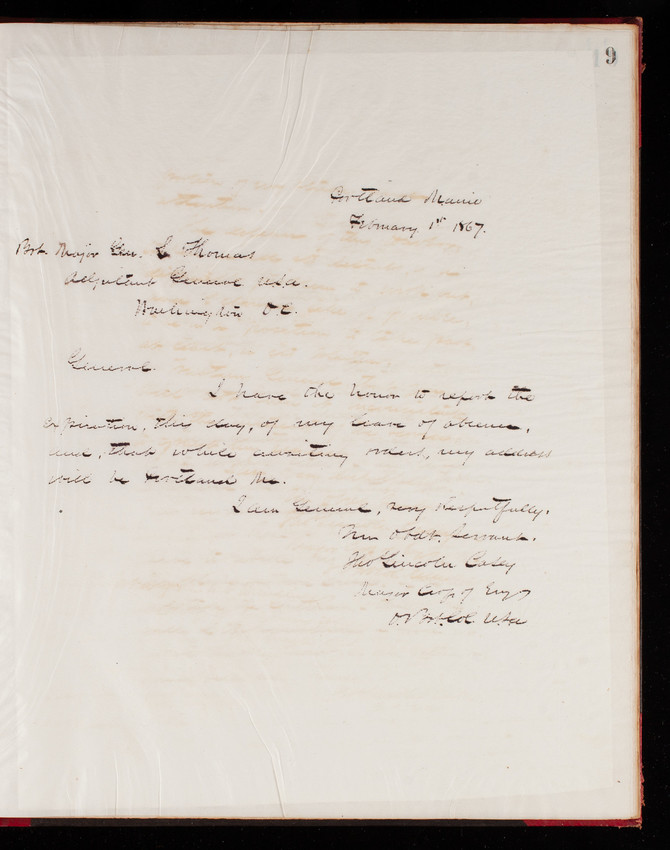 9
Portland Maine
February 1st 1867.
Bvt. Major Gen. L Thomas
Adjutant General U.S.A.
Washington D.C.
General.
I have the honor to report the
expiration, this day, of my leave of absence,
and, that while awaiting orders, my address
will be Portland Me.
I am General, very respectfully.
Your Obdt. Servant.
Tho Lincoln Casey
Major Corps of Engrs
& Bt. Col. U.S.A